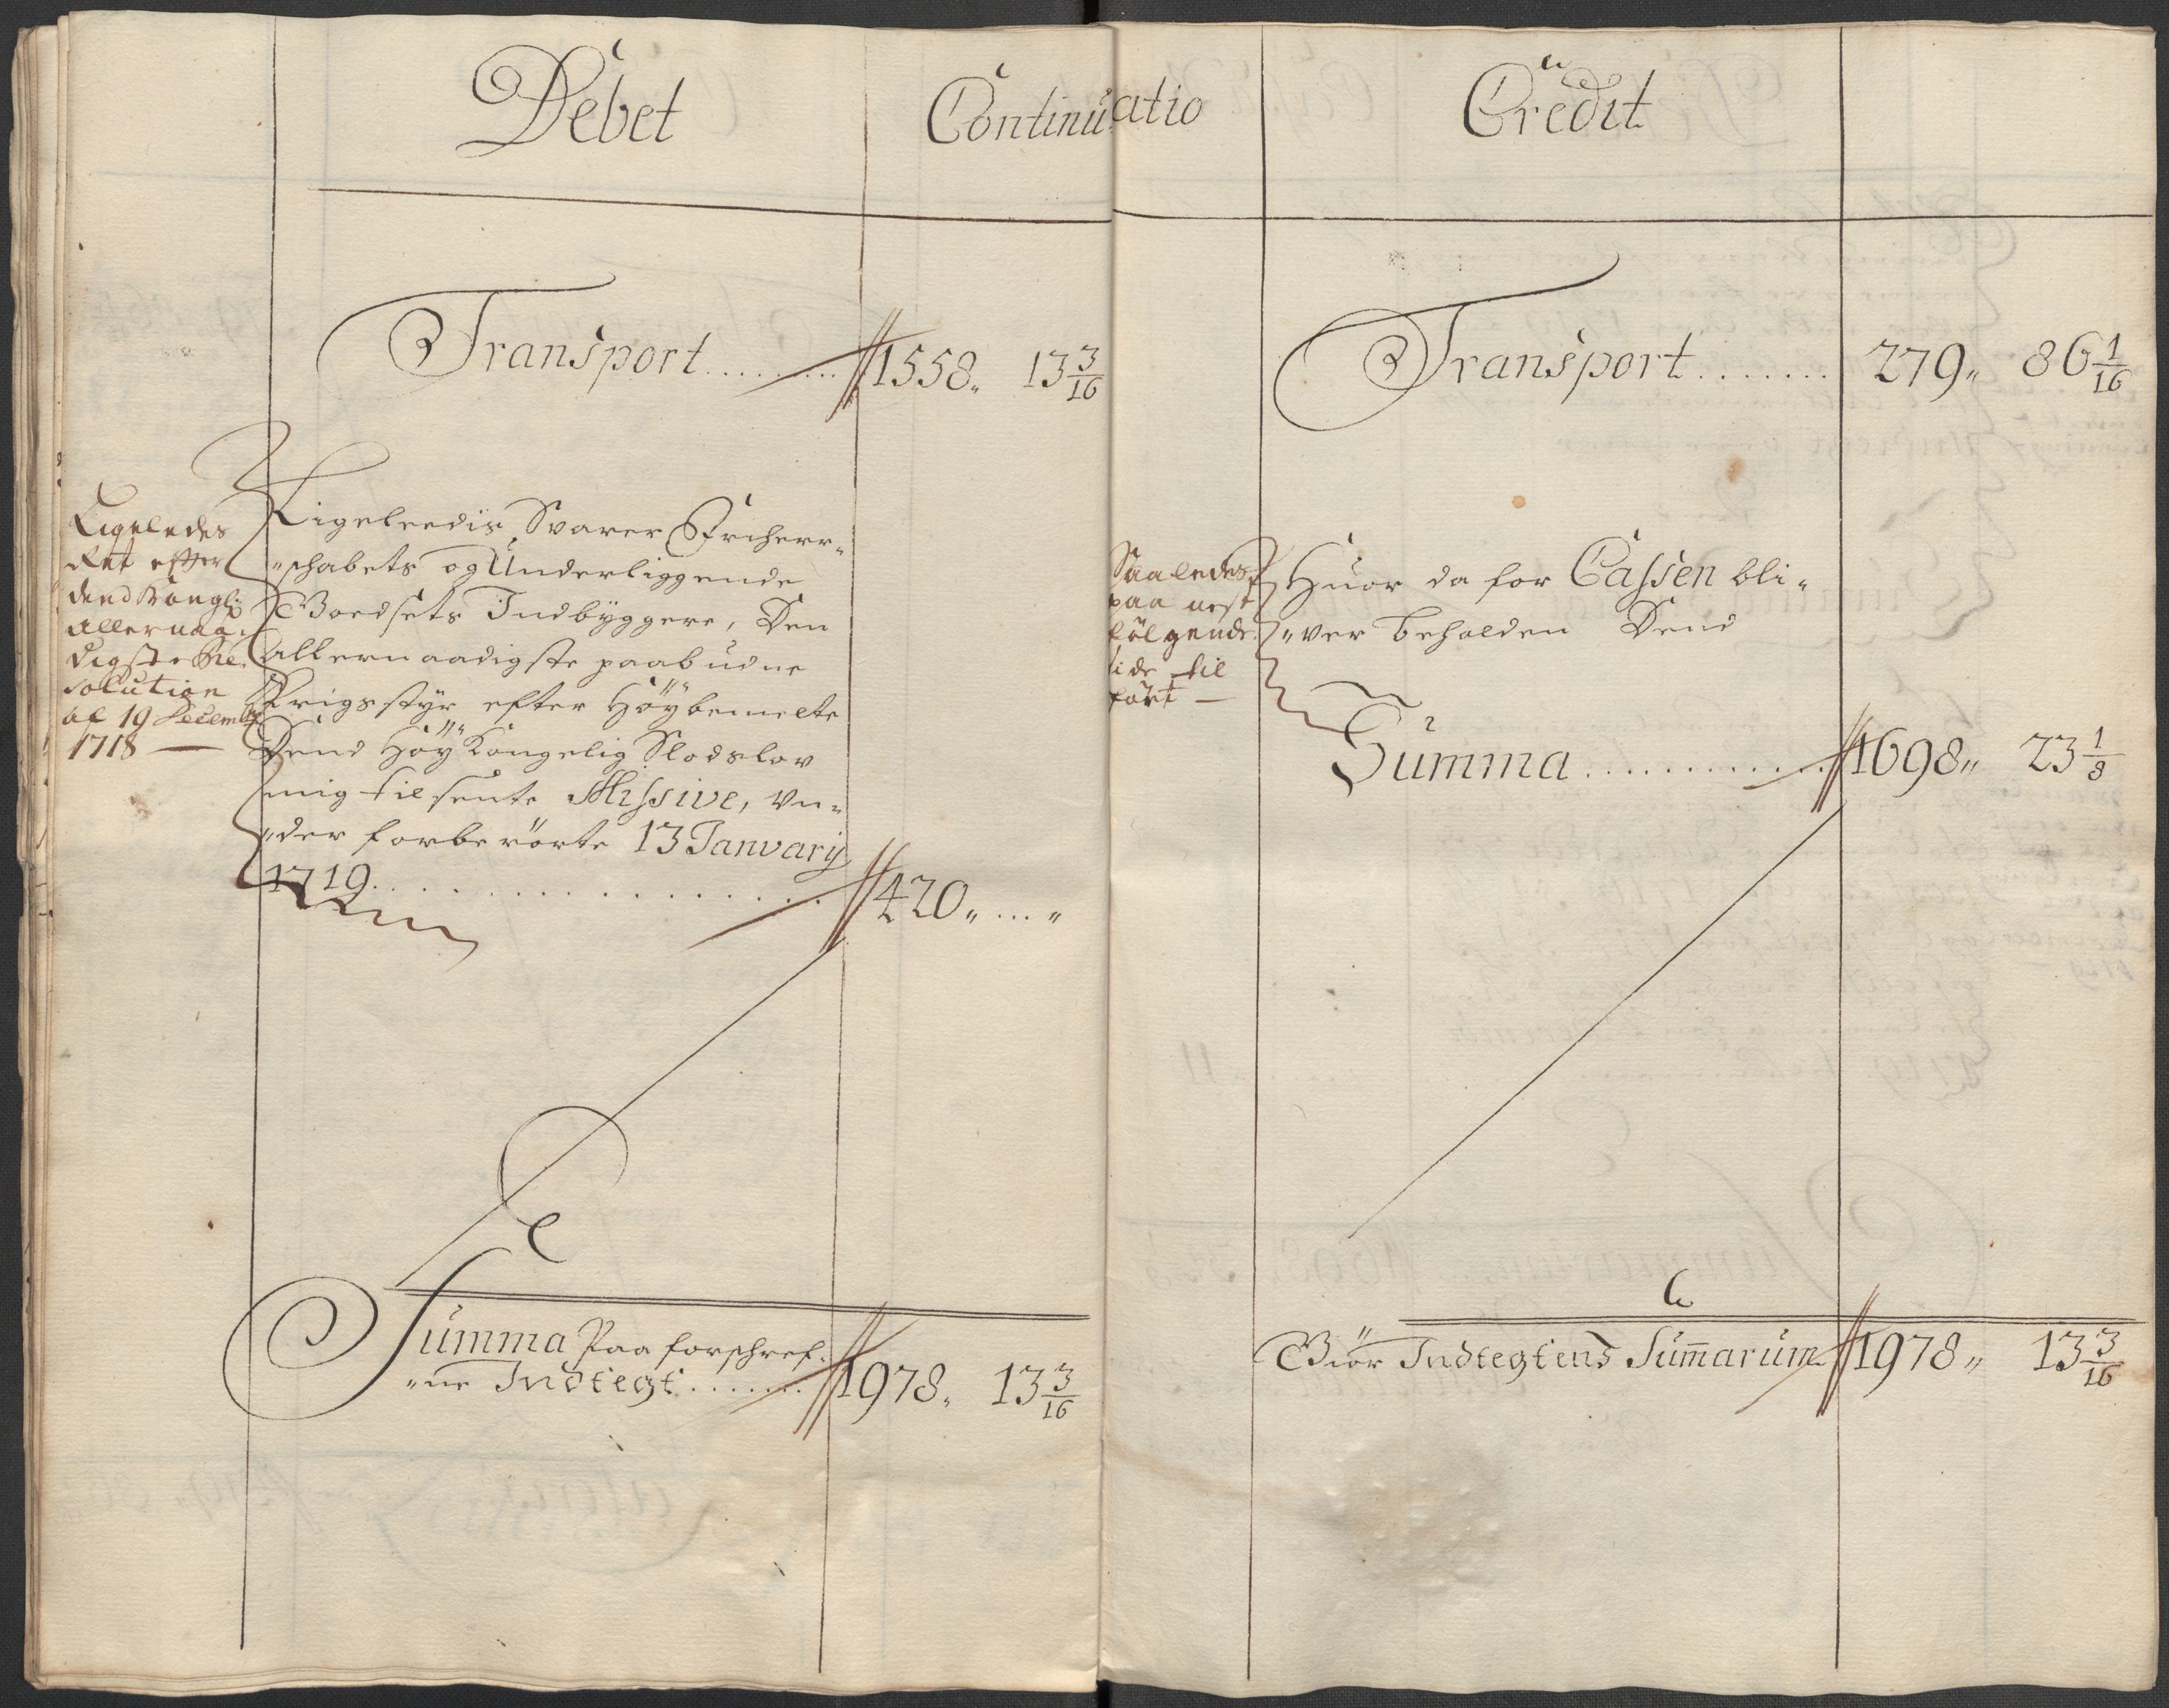 Debet
Continuatio
Credit
Transport......... 1558„ 13 3/16
Ligeledes
Ret efter
dend Kongl:
allernaa-
digste Re-
solution
af 19 Decembr
1718 —
Ligeleedis Svarer Friherr-
„schabets og Underliggende
Goedsets Indbÿggere, Den
allernaadigste paabudne
Krigsstÿr efter Höÿbemelte
Dend Höÿ Kongelig Slodslov
mig tilsente Missive, Un-
„der forberörte 13 Januarij
1719................ 420„ ... „
Summa Paa forschref-
„ne Indtegt....... 1978„ 13 3/16
Transport....... 279„ 86 1/16
Saaledes
paa nest
fölgende
side til
fört —
Huor da for Cassen bli-
„ver beholden Dend
Summa........... 1698„ 23 1/8
Giör Indtegtens Sum̄arum 1978„ 13 3/16